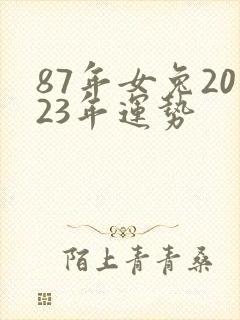 87年女兔20
23年運势
陌上青青桑